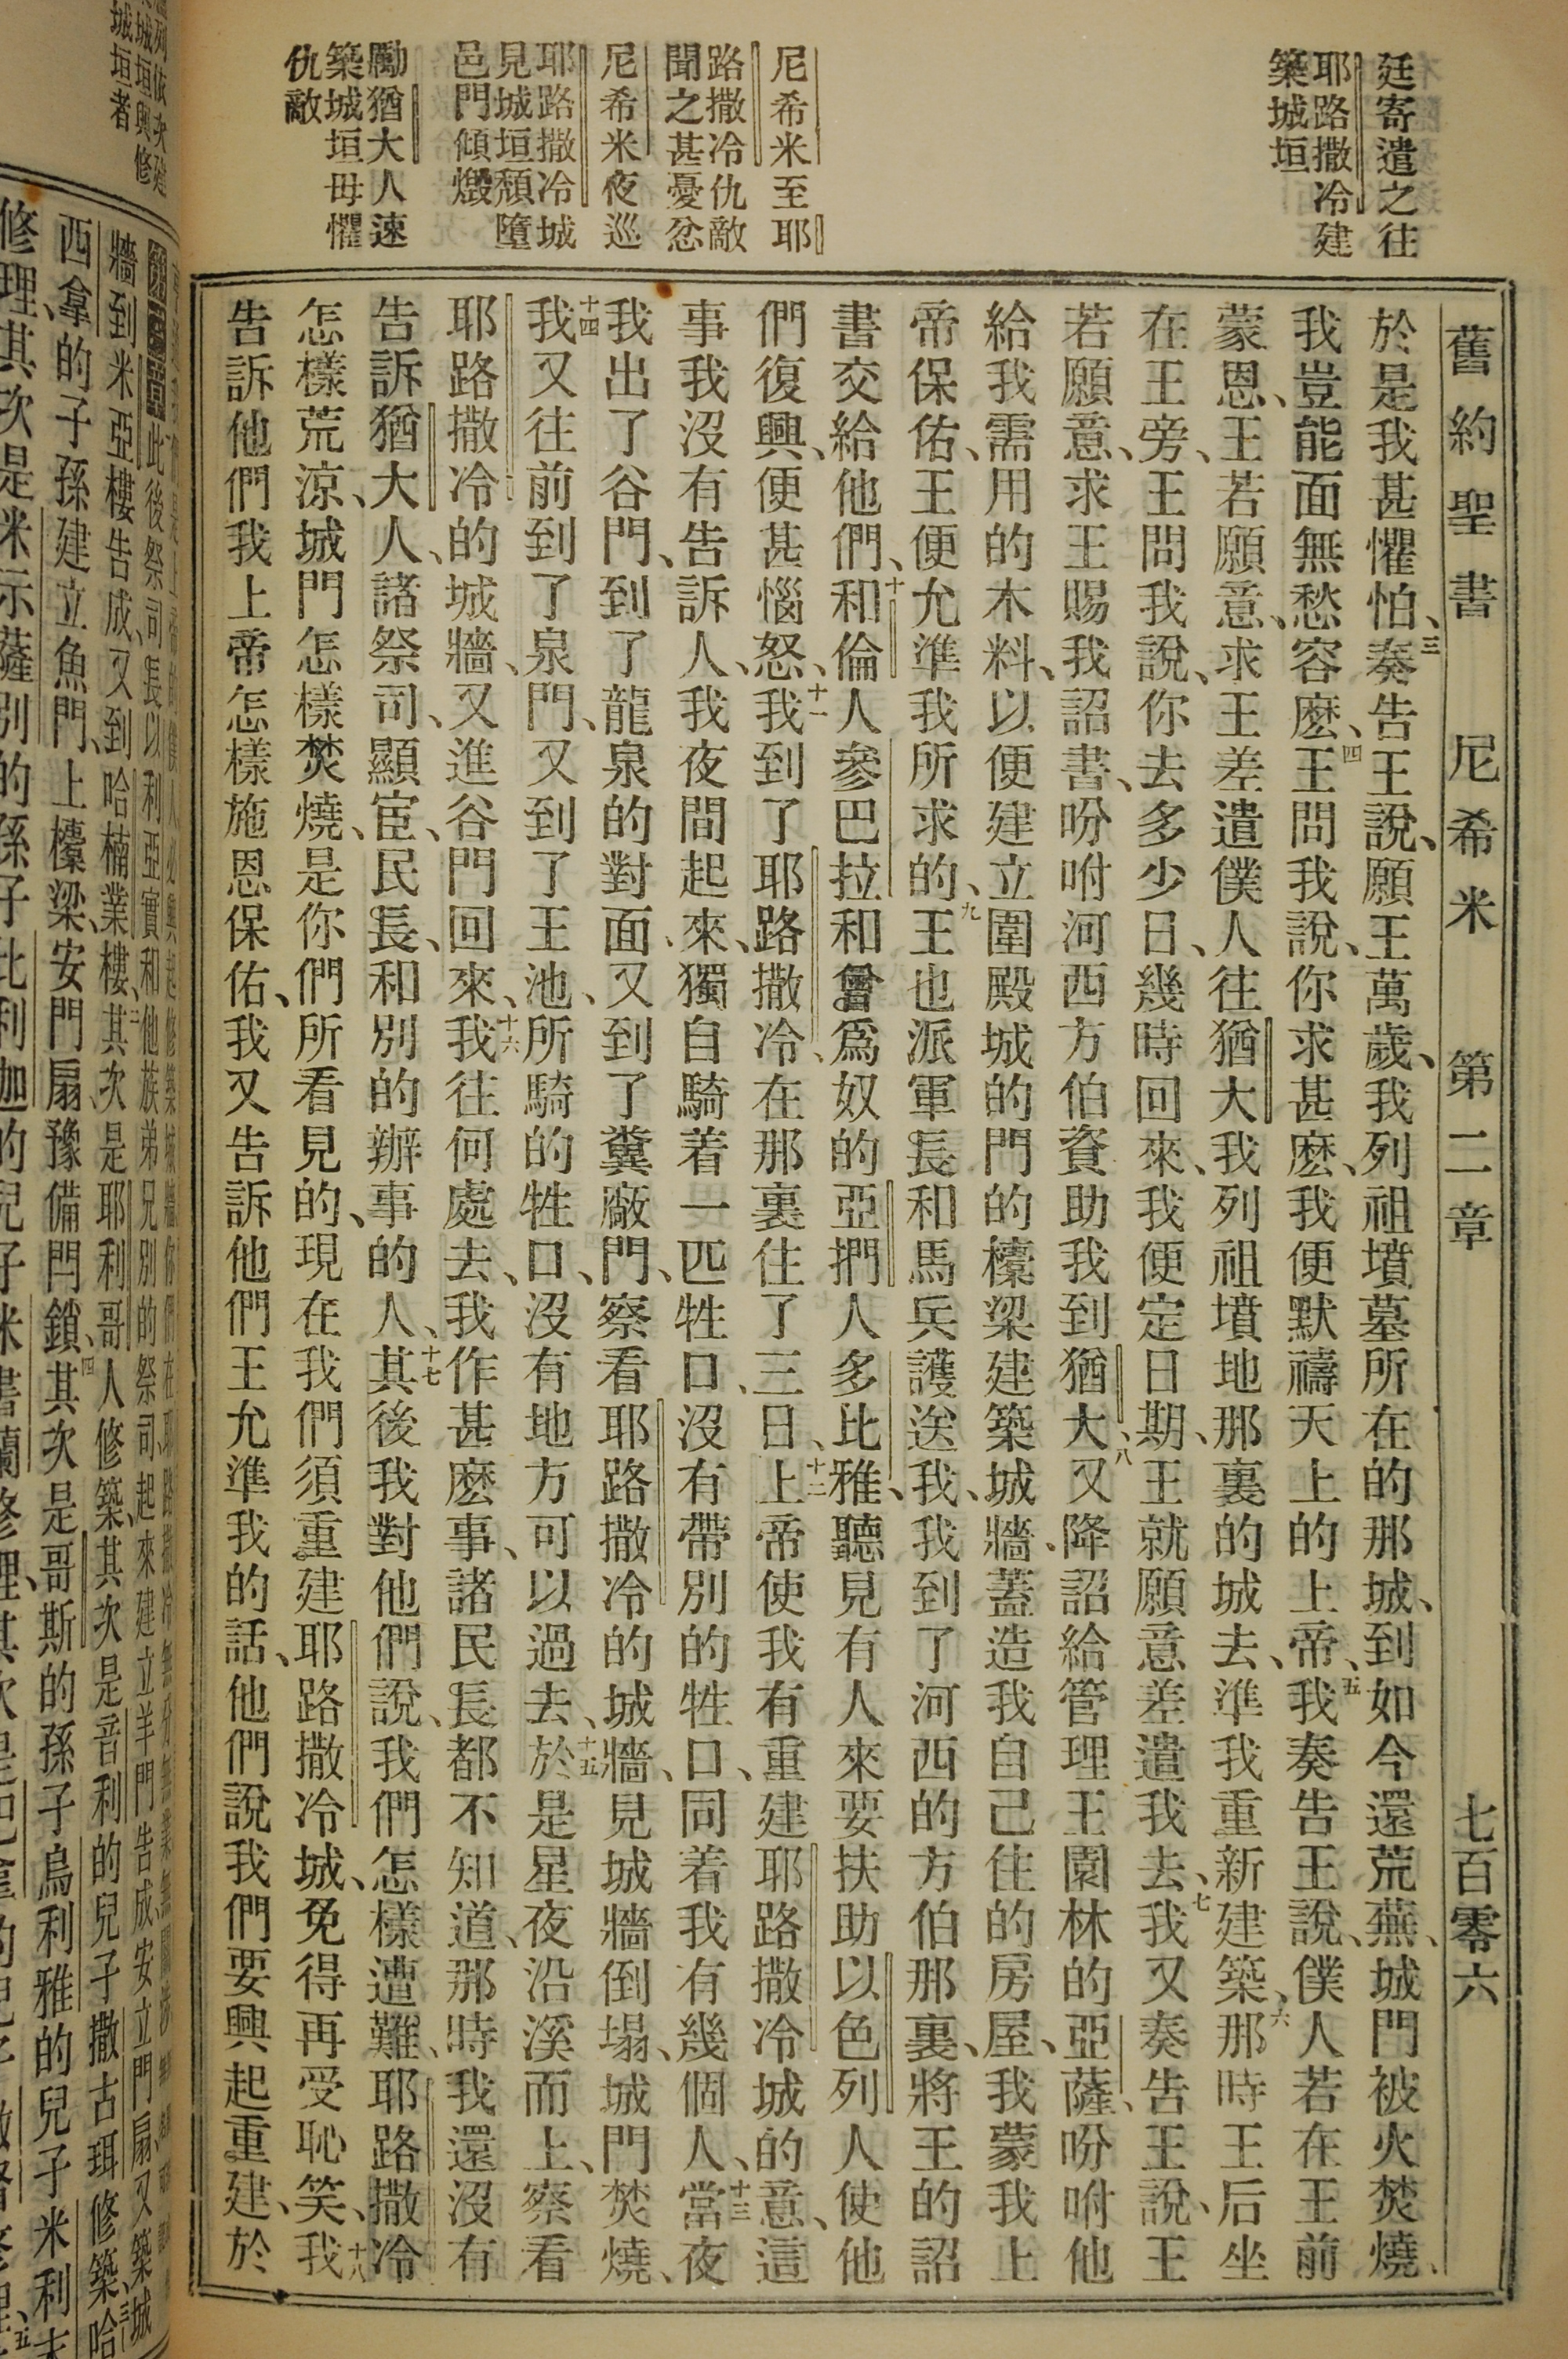 舊約聖書 尼希米 第二章 七百零六
廷寄遣之往
耶路撒冷建
築城垣
尼希米至耶
路撒冷仇敵
聞之甚憂忿
尼希米夜巡
耶路撒冷城
見城垣頹墮
邑門傾燬
勵猶大人速
築城垣毋懼
仇敵
於是我甚懼怕、三奏告王說、願王萬歲、我列祖墳墓所在的那城、到如今還荒蕪、城門被火焚燒、
我豈能面無愁容麽、四王問我說、你求甚麽、我便默禱天上的上帝、五我奏告王說、僕人若在王前
蒙恩、王若願意、求王差遣僕人往猶大我列祖墳地那裏的城去、準我重新建築、六那時王后坐
在王旁、王問我說、你去多少日、幾時回來、我便定日期、王就願意差遣我去、七我又奏告王說、王
若願意、求王賜我詔書、吩咐河西方伯資助我到猶大、八又降詔給管理王園林的亞薩、吩咐他
給我需用的木料、以便建立圍殿城的門的檯梁建築城牆、蓋造我自己住的房屋、我蒙我上
帝保佑、王便允準我所求的、九王也派軍長和馬兵護送我、我到了河西的方伯那裏、將王的詔
書交給他們、十和倫人參巴拉和曾爲奴的亞捫人多比雅、聽見有人來要扶助以色列人使他
們復興、便甚惱怒、十一我到了耶路撒冷、在那裏住了三日、十二上帝使我有重建耶路撒冷城的意、這
事我沒有告訴人、我夜間起來、獨自騎着一匹牲口、沒有帶別的牲口、同着我有幾個人、十三當夜
我出了谷門、到了龍泉的對面、又到了糞廠門、察看耶路撒冷的城牆、見城牆倒塌、城門焚燒、
十四我又往前到了泉門、又到了王池、所騎的牲口、沒有地方可以過去、十五於是星夜沿溪而上、察看
耶路撒冷的城牆、又進谷門回來、十六我往何處去、我作甚麽事、諸民長都不知道、那時我還沒有
告訴猶大人、諸祭司、顯宦、民長、和別的辦事的人、十七其後我對他們說、我們怎樣遭難、耶路撒冷
怎樣荒涼、城門怎樣焚燒、是你們所看見的、現在我們須重建耶路撒冷城、免得再受恥笑、十八我
告訴他們我上帝怎樣施恩保佑、我又告訴他們王允準我的話、他們說我們要興起重建、於
城垣者
此後祭司長以利亞實和他族弟兄別的祭司、起來建立羊門告成、安立門扇、又築城
牆到米亞樓告成、又到哈楠業樓、二其次是耶利哥人修築、其次是音利的兒子撒古珥修築、三哈
西拿的子孫建立魚門、上檯梁、安門扇、豫備閂鎖、四其次是哥斯的孫子烏利雅的兒子米利末
修理、其次是米示薩別的孫子比利迦的兒子米書蘭修理